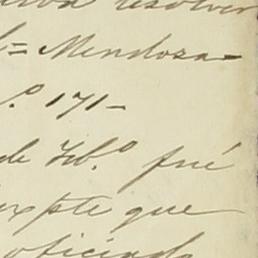 resolver
l= Mendoza=
.º 171-
de Feb.º fué
expte que
oficiado